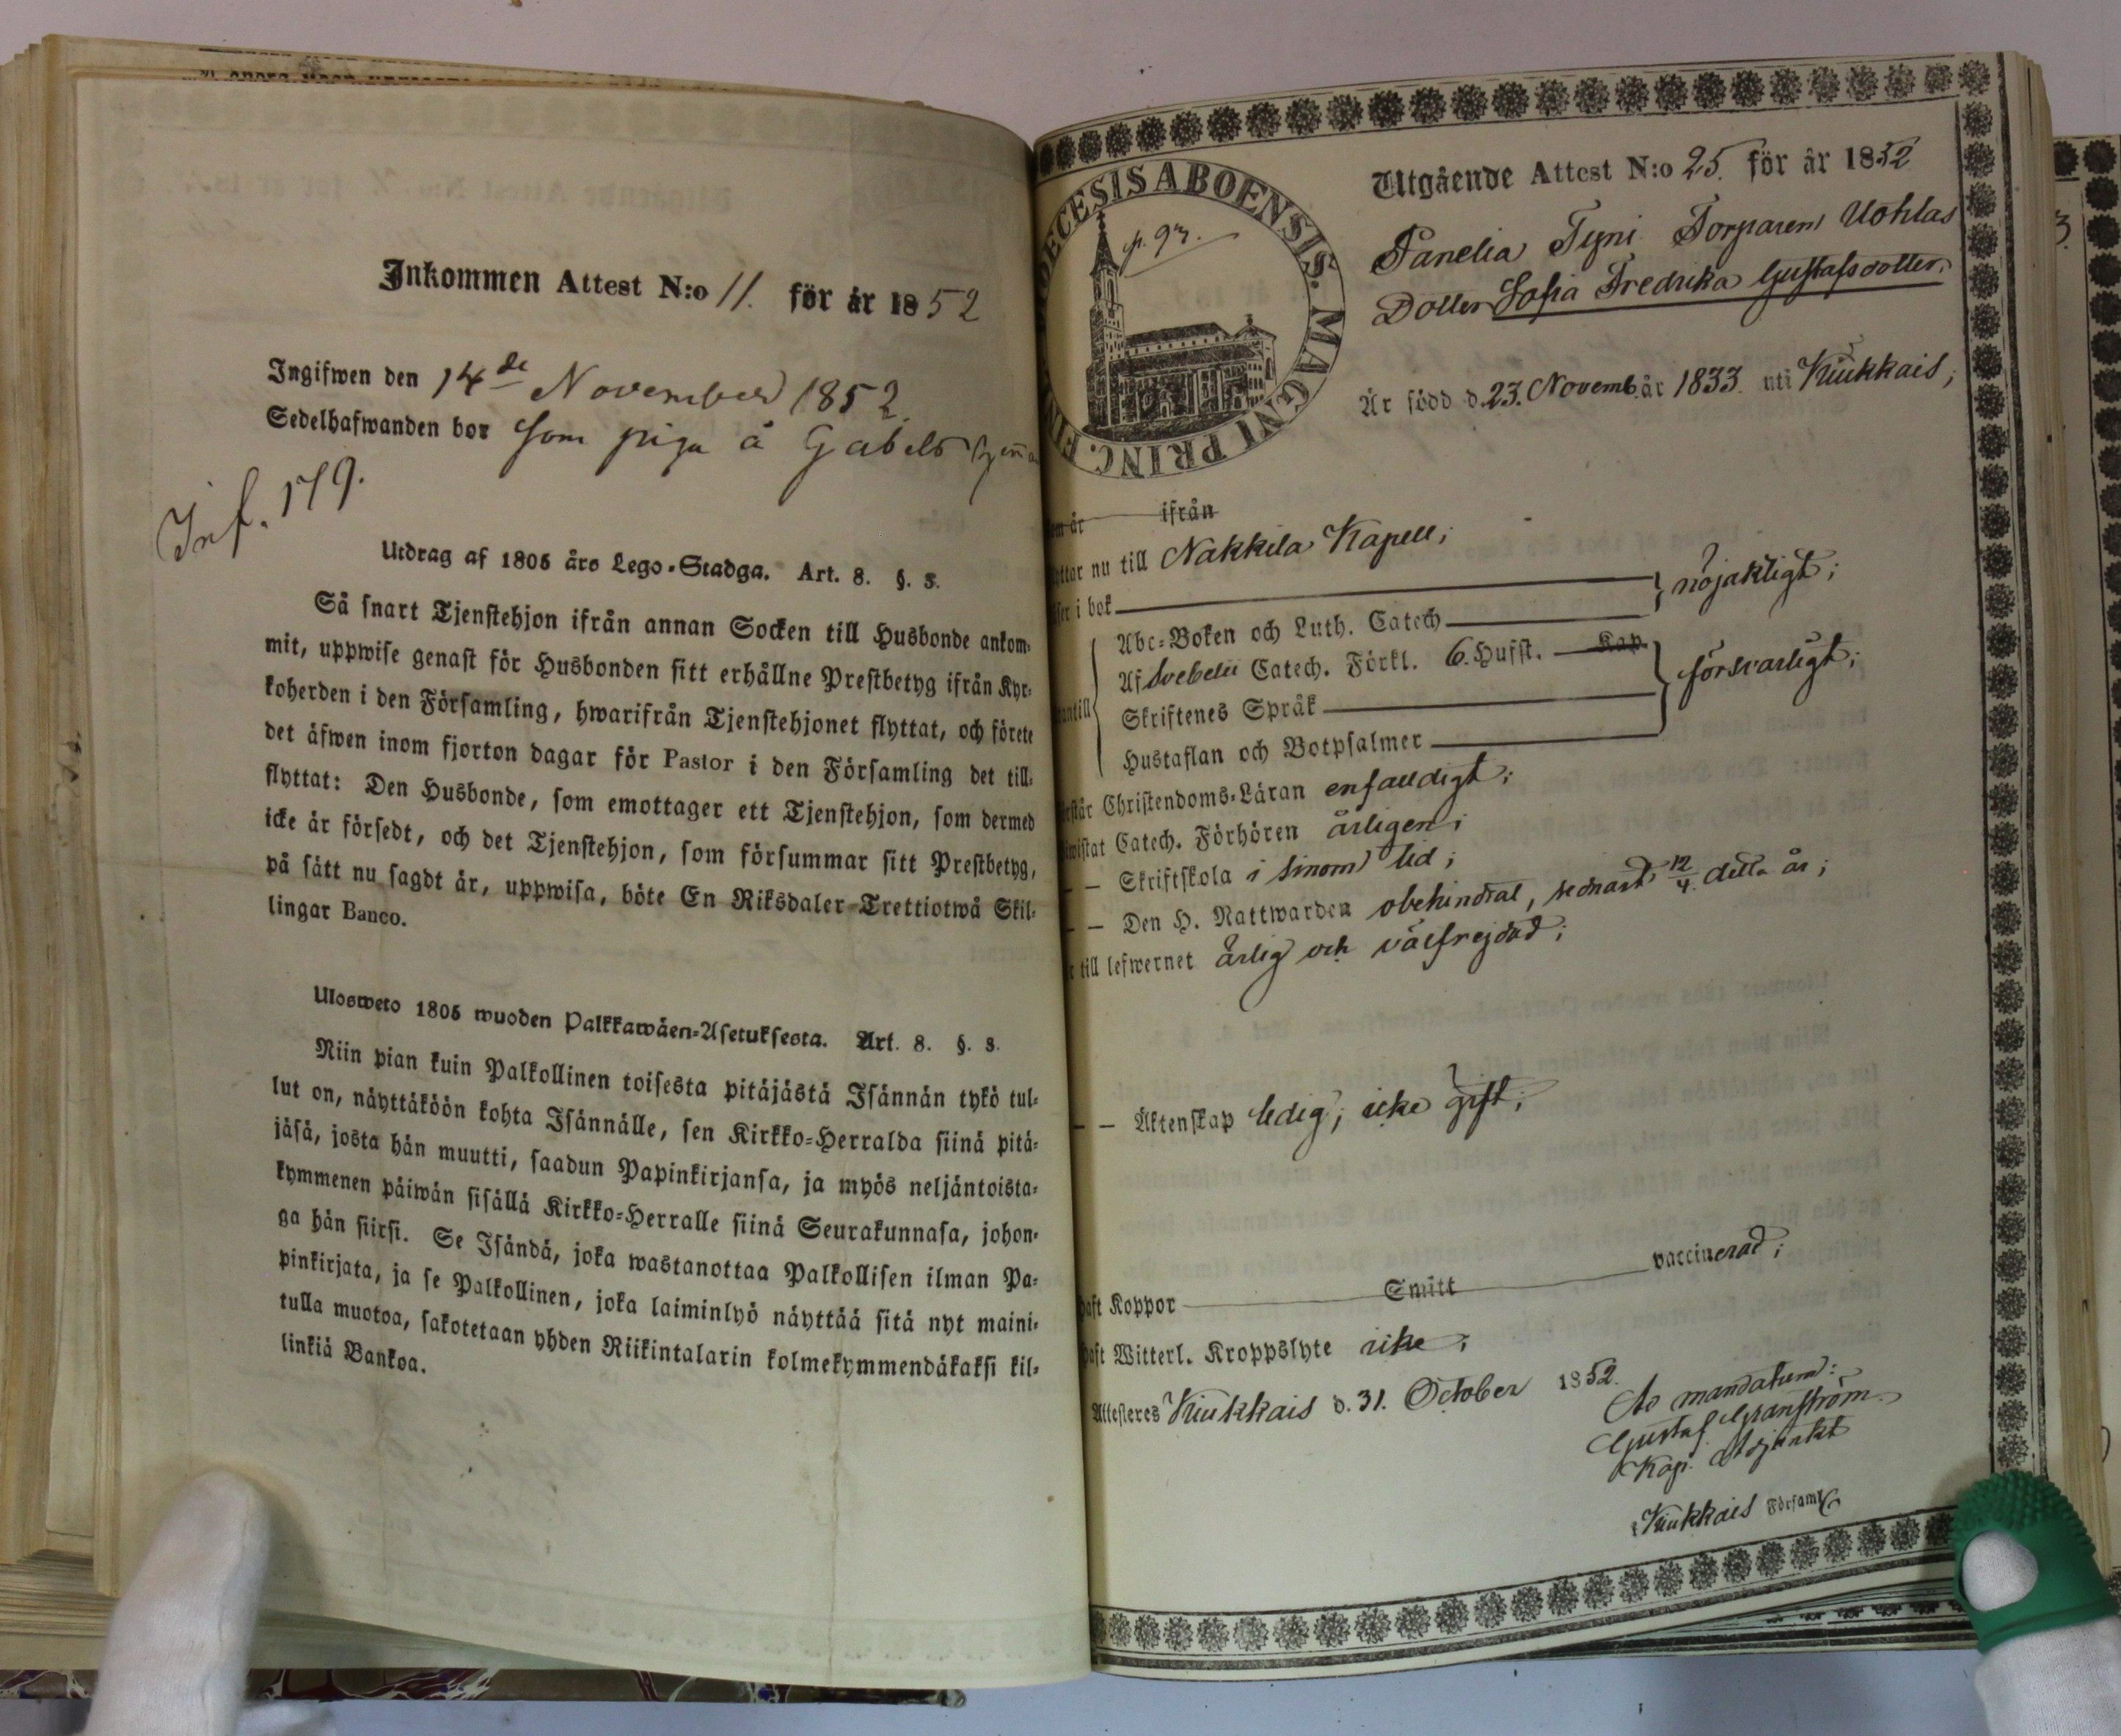 Inkommen Attest N:o 11. för år 1852
Ingifwen den 14de November 1852.
Sedelhafwanden bor som piga å Gabels
Inf. 179.
Utdrag af 1805 års Lego-Stadga. Art. 8. §. 3.
Så snart Tjenstehjon ifrån annan Socken till Husbonde ankom-
mit, uppwise genast för Husbonden sitt erhållne Prestbetyg ifrån Kyr-
koherden i den Församling, hwarifrån Tjenstehjonet flyttat, och förete
det äfwen inom fjorton dagar för Pastor i den Församling det till-
flyttat: Den Husbonde, som emottager ett Tjenstehjon, som dermed
icke är försedt, och det Tjenstehjon, som försummar sitt Prestbetyg,
på sätt nu sagdt är, uppwisa, böte En Riksdaler Trettiotwå Skil-
lingar Banco.
Ulosweto 1805 wuoden Palkkawäen-Asetuksesta. Art. 8. §. 3.
Niin pian kuin Palkollinen toisesta pitäjästä Isännän tykö tul-
lut on, näyttäköön kohta Isännälle, sen Kirkko-Herralda siinä pitä-
jäsä, josta hän muutti, saadun Papinkirjansa, ja myös neljäntoista-
kymmenen päiwän sisällä Kirkko-Herralle siinä Seurakunnasa, johon-
ga hän siirsi. Se Isändä, joka wastanottaa Palkollisen ilman Pa-
pinkirjata, ja se Palkollinen, joka laiminlyö näyttää sitä nyt maini-
tulla muotoa, sakotetaan yhden Riikintalarin kolmekymmendäkaksi kil-
linkiä Bankoa.
DECESIS ABOENSIS. MAGNI PRINC. FIN
p. 93.
Utgående Attest N:o 25. för år 1852
Panelia Tyni Torparen Uohlas
Dotter Sofia Fredrika Gustafsdotter,
Är född d. 23. Novemb. år 1833 uti Kiukkais;
om är ifrån
yttar nu till Nakkila Kapell;
ser i bok nöjaktigt;
Abc-Boken och Luth. Catech
Af Svebelii Catech. Förkl. 6. Hufst. Kap. försvarligt;
antill Skriftenes Språk
Hustaflan och Botpsalmer
rstår Christendoms-Läran enfaldigt;
wistat Catech. Förhören årligen;
— Skriftskola i sinom tid;
— Den H. Nattwarden obehindrat, sednast 12/4 detta år;
till lefwernet ärlig och välfrejdad;
— Äktenskap ledig; icke gift;
haft Koppor Smitt vaccinerad;
haft Witterl. Kroppslyte icke;
Attesteres Kiukkais d. 31. October 1852.
Ad mandatum:
Gustaf Granström.
Kap. Adjunkt
Kiukkais Församl.